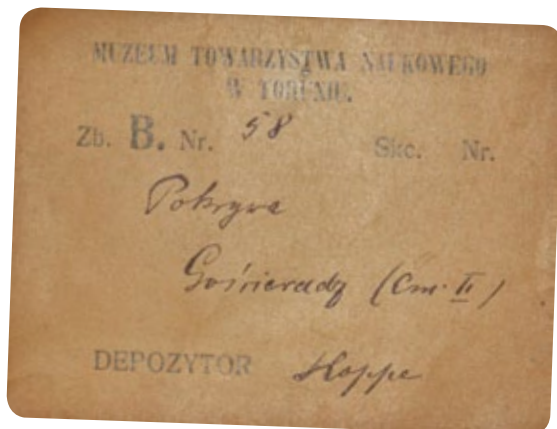 MUZEUM TOWARZYSTWA NAUKOWEGO
W TORUNIU.
Zb. B. Nr. 58 Skc. Nr.
Pokrywa
Gościeradz (Cm. II)
DEPOZYTOR Hoppe